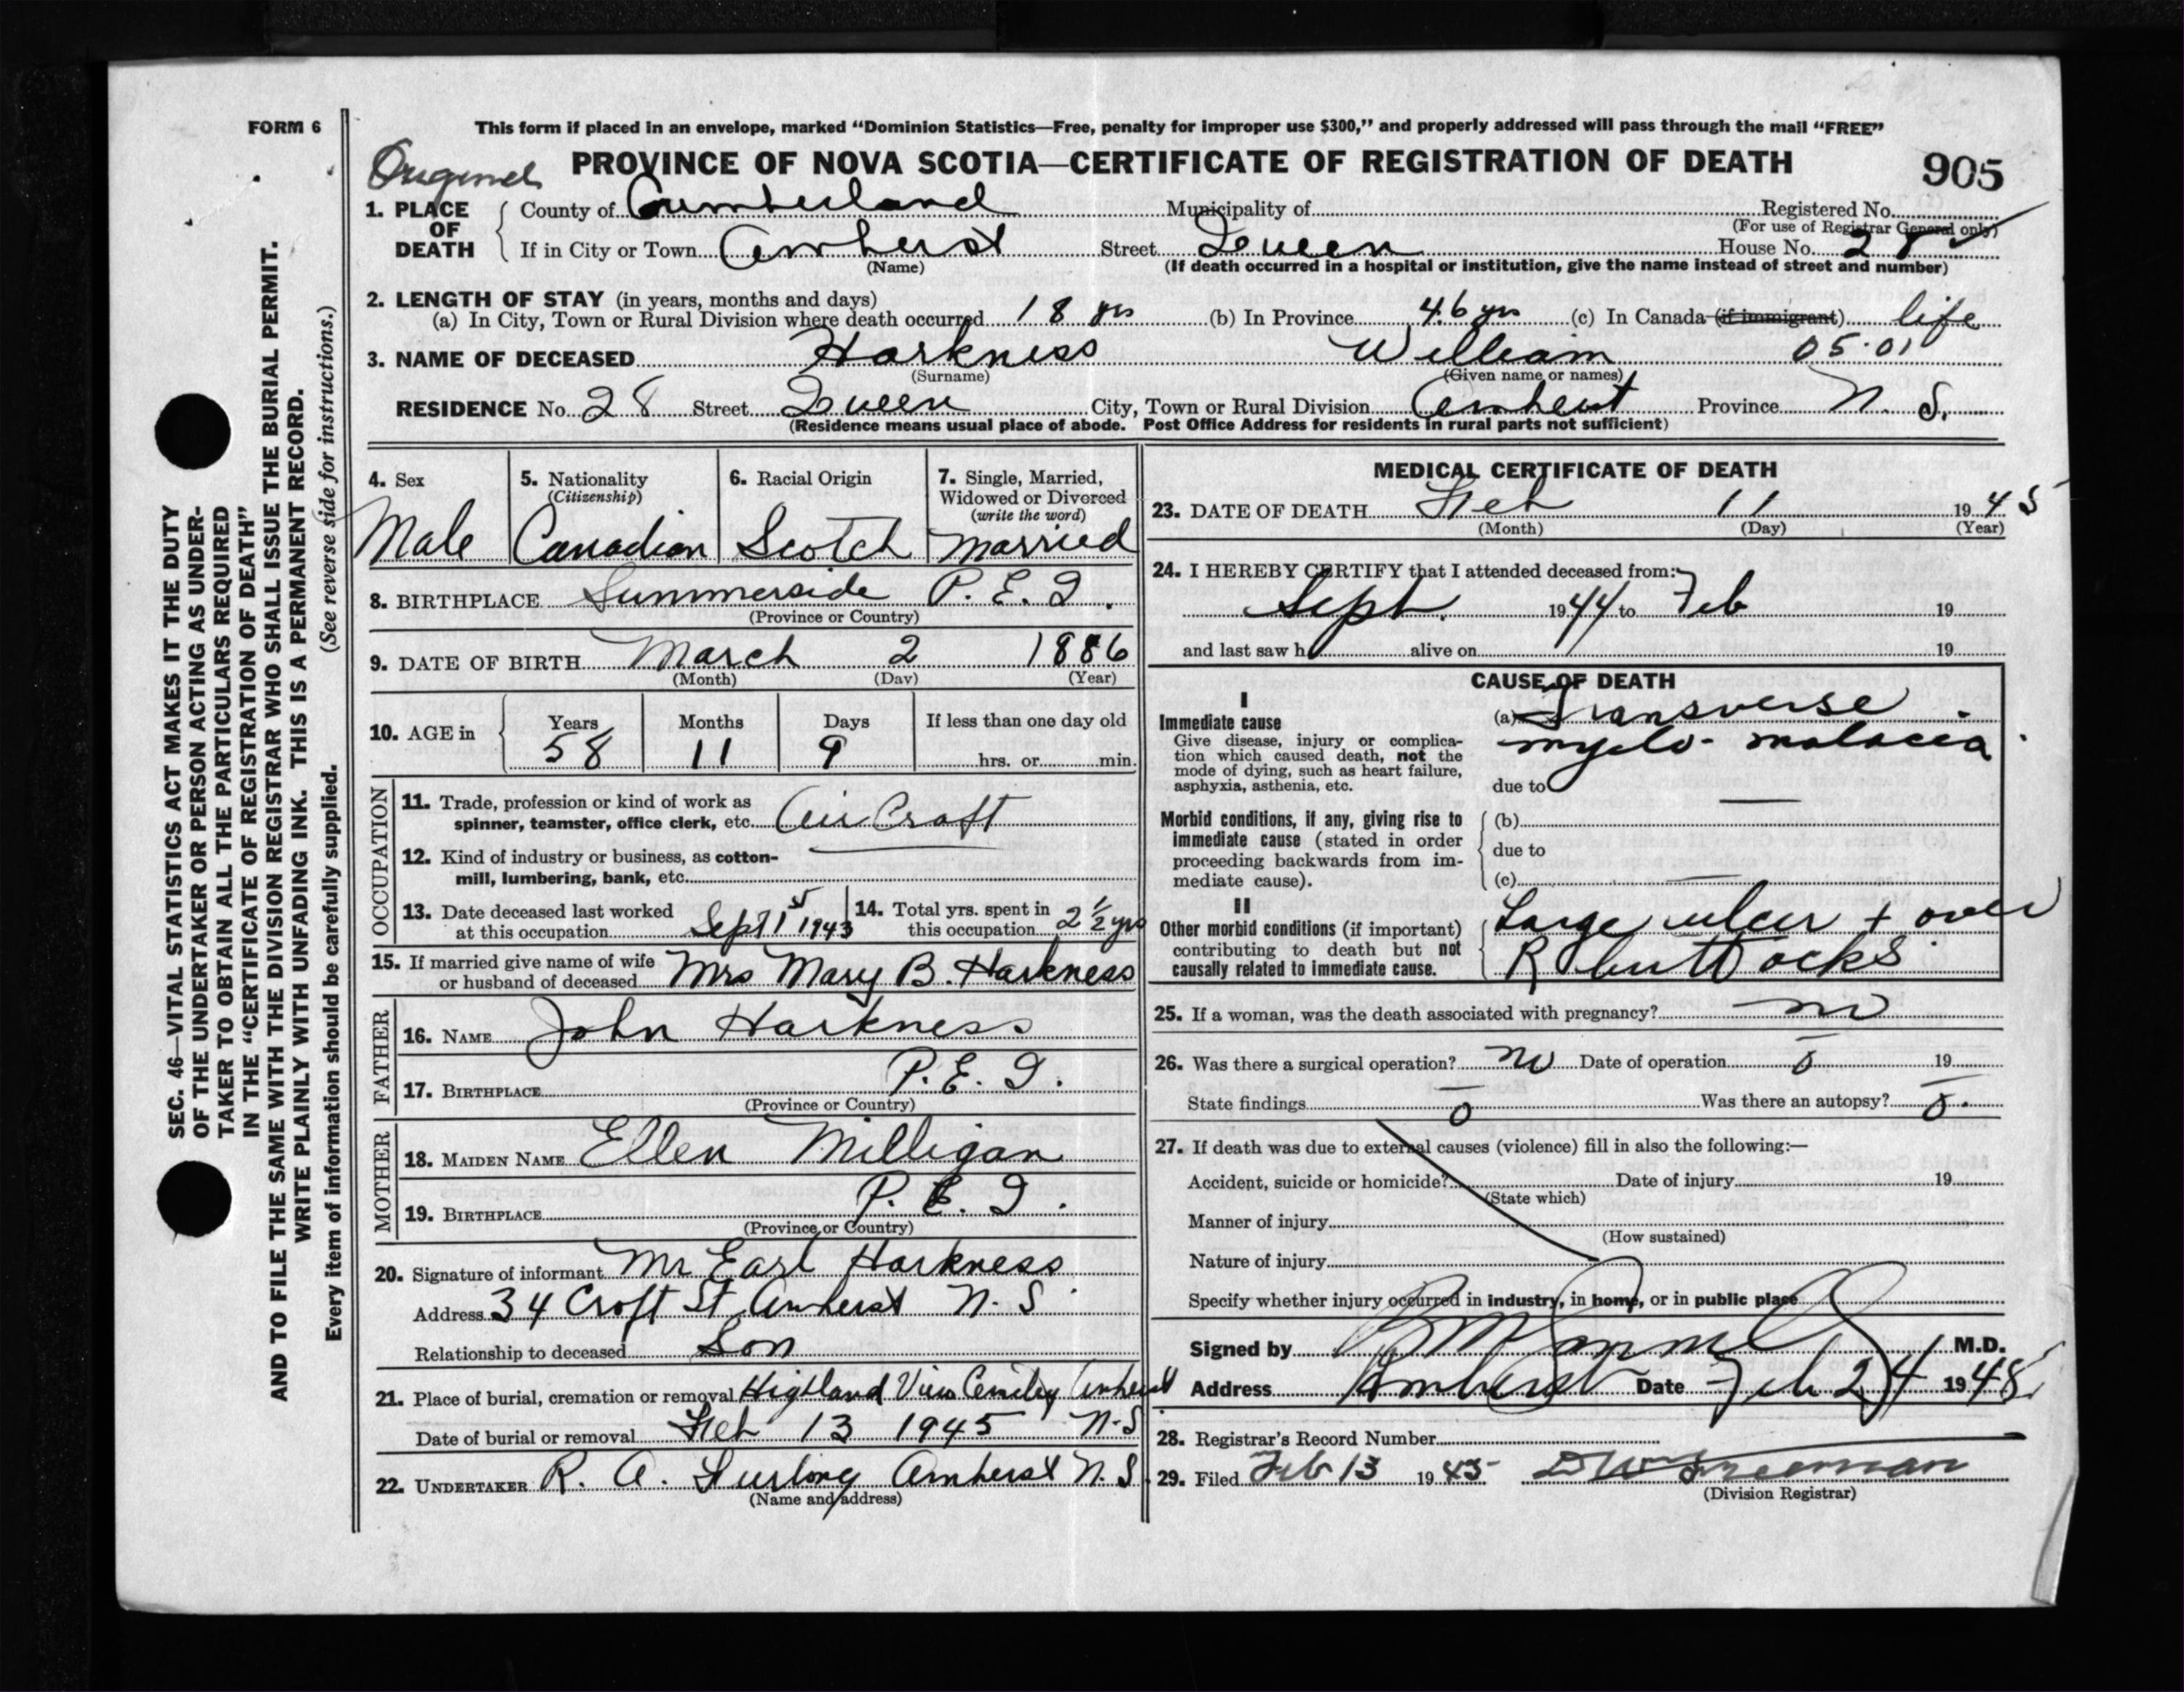 FORM 6
This form if placed in an envelope, marked “Dominion Statistics—Free, penalty for improper use $300,” and properly addressed will pass through the mail “FREE”
Original
PROVINCE OF NOVA SCOTIA—CERTIFICATE OF REGISTRATION OF DEATH
905
1. PLACE OF DEATH
County of Cumberland Municipality of Registered No.
(For use of Registrar General only)
If in City or Town Amherst Street Queen House No. 28
(Name) (If death occurred in a hospital or institution, give the name instead of street and number)
2. LENGTH OF STAY (in years, months and days)
(a) In City, Town or Rural Division where death occurred 18 yrs (b) In Province 46 yrs (c) In Canada (if immigrant) life
3. NAME OF DECEASED Harkness William 05.01
(Surname) (Given name or names)
RESIDENCE No. 28 Street Queen City, Town or Rural Division Amherst Province N. S.
(Residence means usual place of abode. Post Office Address for residents in rural parts not sufficient)
4. Sex
Male
5. Nationality
(Citizenship)
Canadian
6. Racial Origin
Scotch
7. Single, Married,
Widowed or Divorced
(write the word)
Married
8. BIRTHPLACE Summerside P. E. I.
(Province or Country)
9. DATE OF BIRTH March 2 1886
(Month) (Day) (Year)
10. AGE in
Years Months Days If less than one day old
58 11 9 hrs. or min.
OCCUPATION
11. Trade, profession or kind of work as
spinner, teamster, office clerk, etc. Air Craft
12. Kind of industry or business, as cotton-
mill, lumbering, bank, etc.
13. Date deceased last worked
at this occupation Sept 1st 1943
14. Total yrs. spent in
this occupation 2 ½ yrs
15. If married give name of wife
or husband of deceased Mrs Mary B. Harkness
FATHER
16. NAME John Harkness
17. BIRTHPLACE P. E. I.
(Province or Country)
MOTHER
18. MAIDEN NAME Ellen Milligan
19. BIRTHPLACE P. E. I.
(Province or Country)
20. Signature of informant Mr Earl Harkness
Address 34 Croft St Amherst N. S.
Relationship to deceased Son
21. Place of burial, cremation or removal Highland View Amherst
Date of burial or removal Feb 13 1945 N.S.
22. UNDERTAKER R. A. Furlong Amherst N. S.
(Name and address)
MEDICAL CERTIFICATE OF DEATH
23. DATE OF DEATH Feb 11 1945
(Month) (Day) (Year)
24. I HEREBY CERTIFY that I attended deceased from:
Sept. 1944 to Feb 19
and last saw h alive on 19
CAUSE OF DEATH
I
Immediate cause
Give disease, injury or complica-
tion which caused death, not the
mode of dying, such as heart failure,
asphyxia, asthenia, etc.
(a) Transverse
myelo-malacia
due to
Morbid conditions, if any, giving rise to
immediate cause (stated in order
proceeding backwards from im-
mediate cause).
(b)
due to
(c)
II
Other morbid conditions (if important)
contributing to death but not
causally related to immediate cause.
Large ulcer + over
R buttocks
25. If a woman, was the death associated with pregnancy? no
26. Was there a surgical operation? no Date of operation 0 19
State findings 0 Was there an autopsy? 0.
27. If death was due to external causes (violence) fill in also the following:—
Accident, suicide or homicide? Date of injury 19
(State which)
Manner of injury
(How sustained)
Nature of injury
Specify whether injury occurred in industry, in home, or in public place
Signed by M.D.
Address Amherst Date Feb 24 1945
28. Registrar's Record Number
29. Filed Feb 13 1945 D W Freeman
(Division Registrar)
SEC. 46—VITAL STATISTICS ACT MAKES IT THE DUTY
OF THE UNDERTAKER OR PERSON ACTING AS UNDER-
TAKER TO OBTAIN ALL THE PARTICULARS REQUIRED
IN THE “CERTIFICATE OF REGISTRATION OF DEATH”
AND TO FILE THE SAME WITH THE DIVISION REGISTRAR WHO SHALL ISSUE THE BURIAL PERMIT.
WRITE PLAINLY WITH UNFADING INK. THIS IS A PERMANENT RECORD.
Every item of information should be carefully supplied. (See reverse side for instructions.)